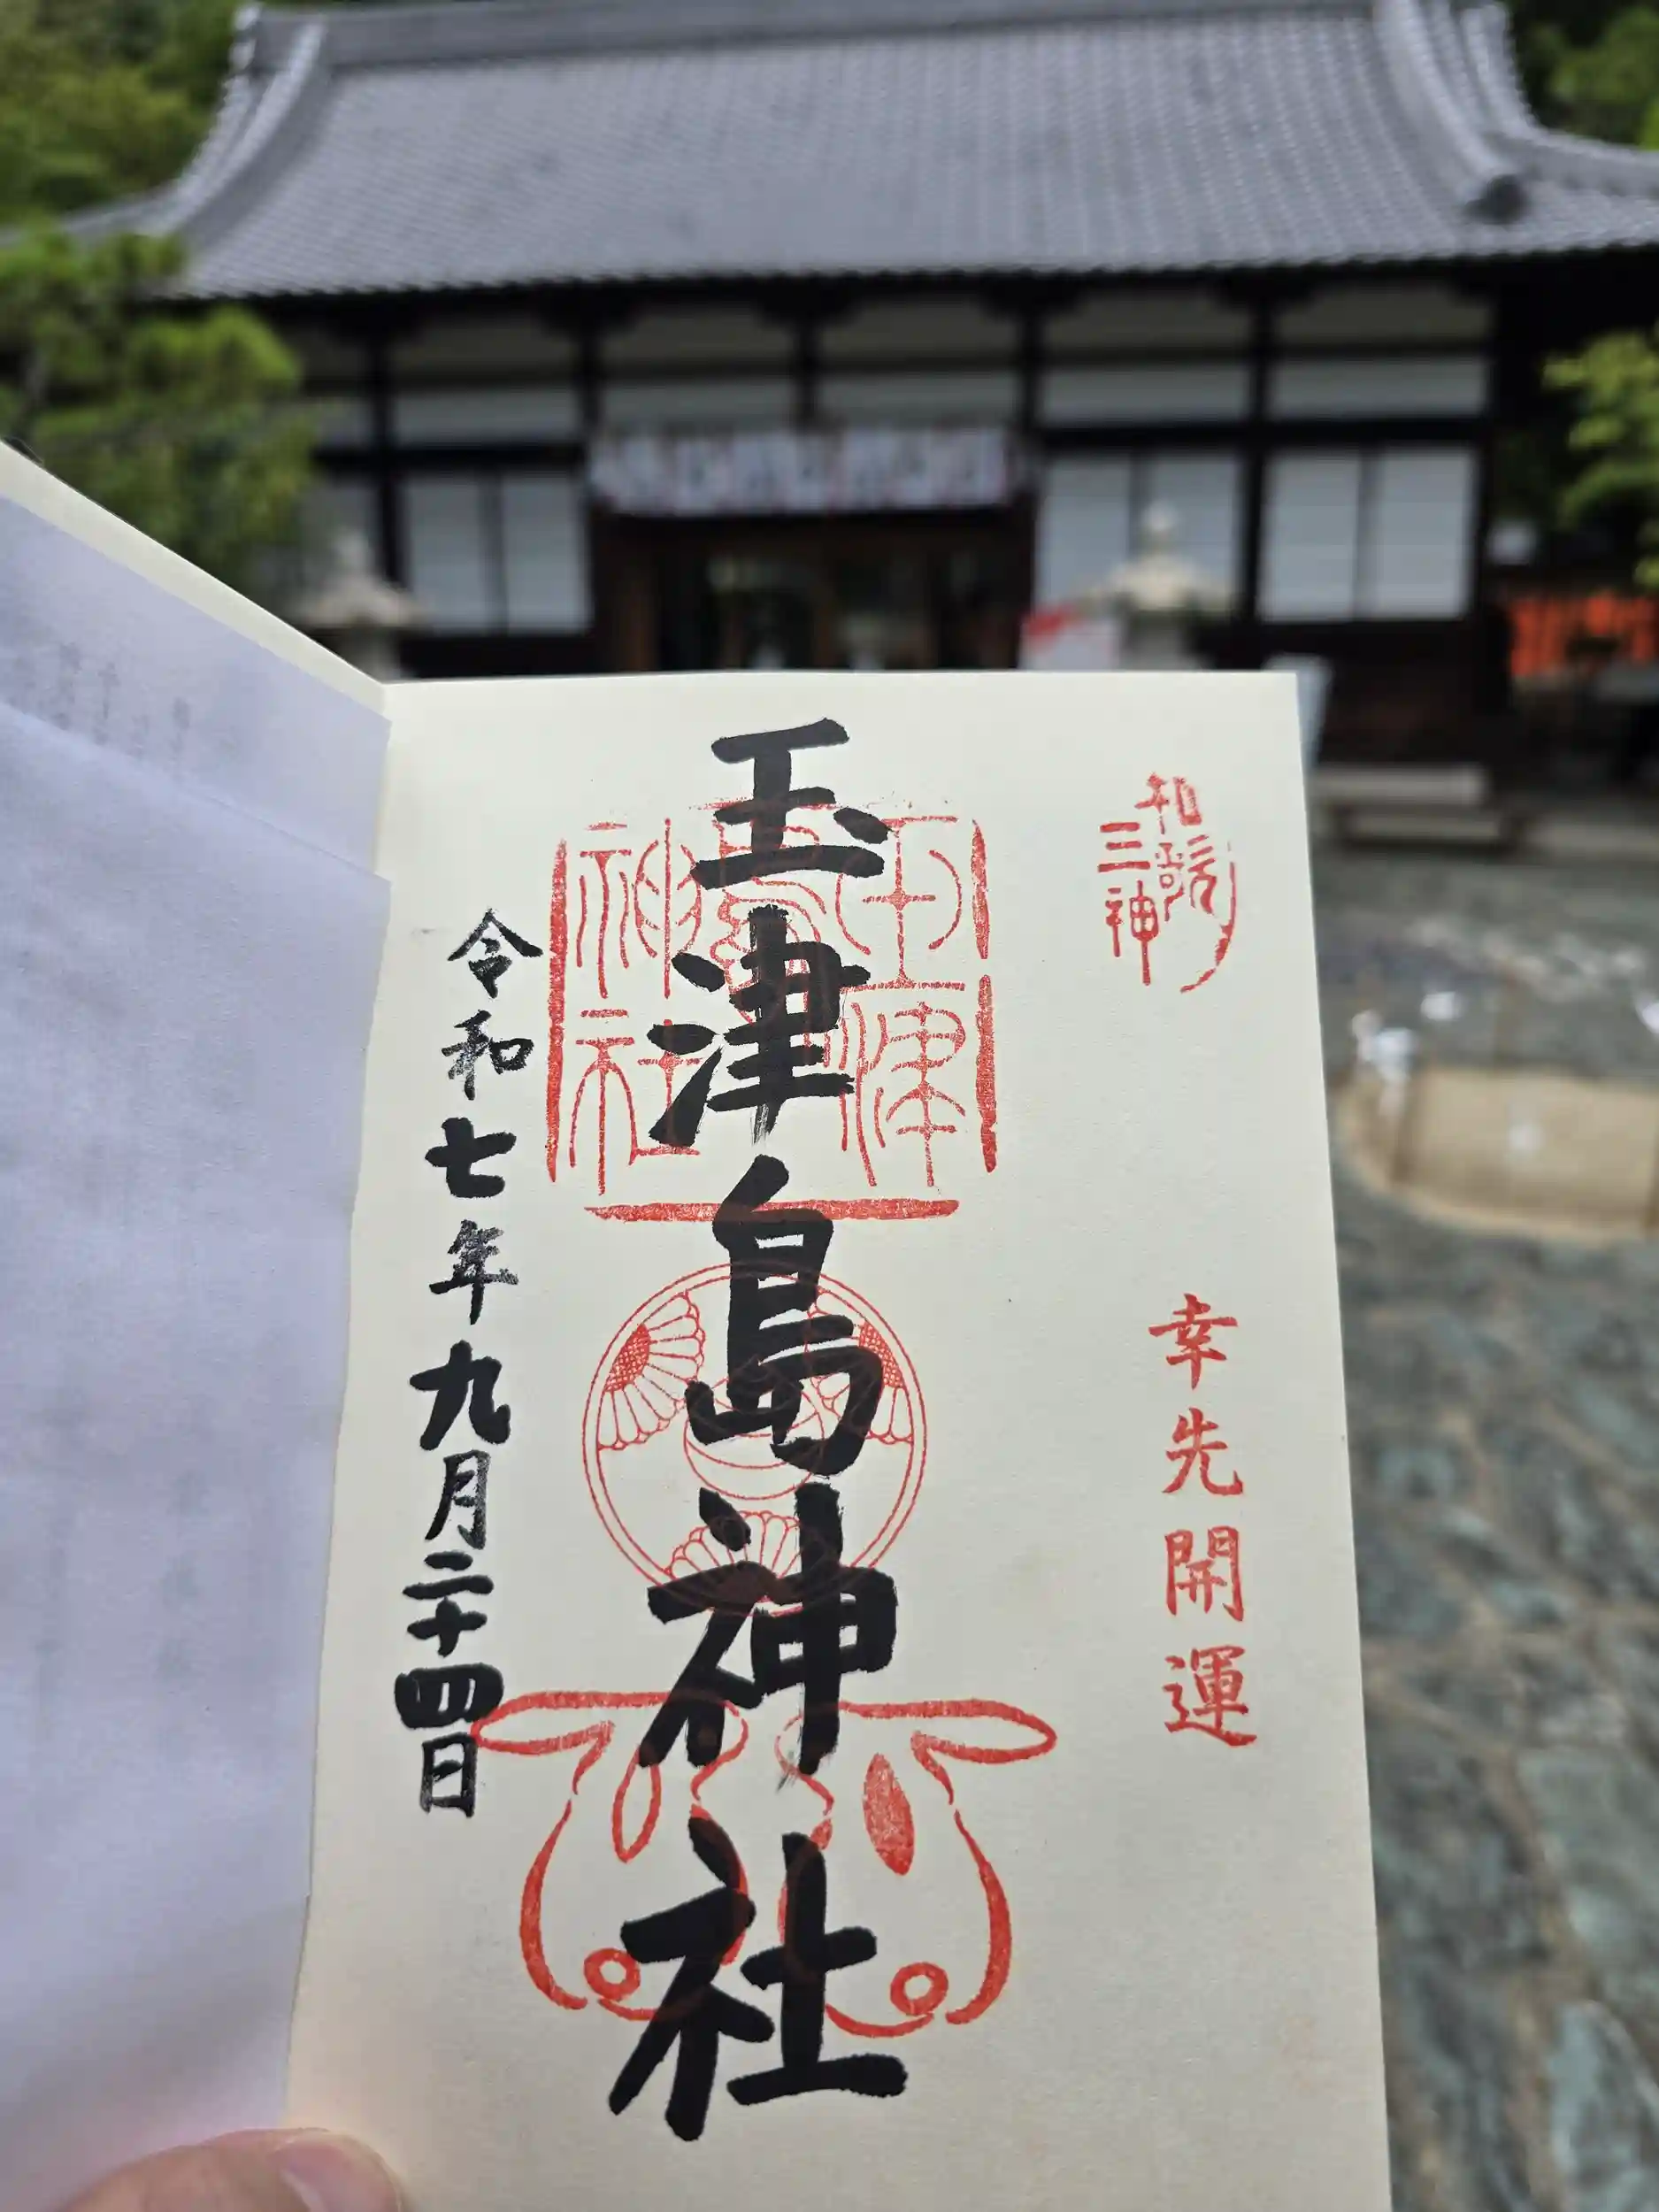 和歌
三神
幸先開運
玉津島神社
玉津
島
神社
令和七年九月二十四日